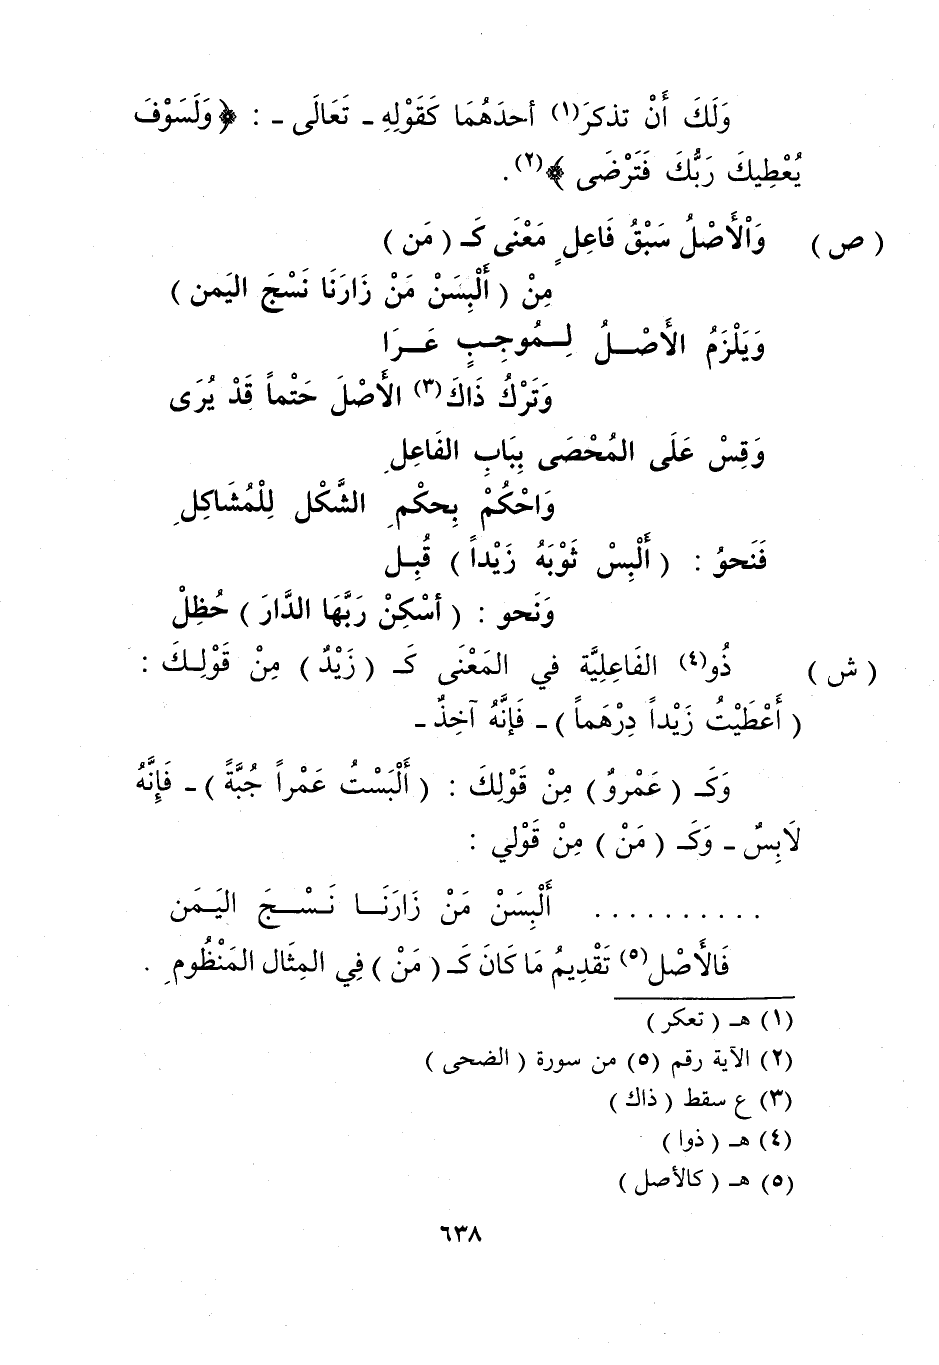 وَلَكَ أَنْ تذكرَ(١) أحدَهُمَا كَقَوْلِهِ ـ تَعَالَى ـ : ﴿ وَلَسَوْفَ
يُعْطِيكَ رَبُّكَ فَتَرْضَى ﴾(٢).
( ص ) وَاْلأَصْلُ سَبْقُ فَاعِلٍ مَعْنَى كَـ ( مَن )
مِنْ ( أَلْبِسَنْ مَنْ زَارَنَا نَسْجَ اليَمن )
وَيَلْزَمُ الأَصْـلُ لِـمُوجِـبٍ عَـرَا
وَتَرْكُ ذَاكَ(٣) الأَصْلَ حَتْماً قَدْ يُرَى
وَقِسْ عَلَى المُحْصَى بِبَابِ الفَاعِلِ
وَاحْكُمْ بِحكْمِ الشَّكْل لِلْمُشَاكِلِ
فَنَحوُ : ( أَلْبِسْ ثَوْبَهُ زَيْداً ) قُبِـل
وَنَحو : ( أسْكِنْ رَبَّهَا الدَّارَ ) حُظِلْ
( ش ) ذُو(٤) الفَاعِلِيَّة في المَعْنَى كَـ ( زَيْدٌ ) مِنْ قَوْلِـكَ :
( أَعْطَيْتُ زَيْداً دِرْهَماً ) ـ فَإِنَّهُ آخِذٌ ـ
وَكَـ ( عَمْروٌ ) مِنْ قَوْلِكَ : ( أَلْبَسْتُ عَمْراً جُبَّةً ) ـ فَإِنَّهُ
لَابِسٌ ـ وَكَـ ( مَنْ ) مِنْ قَوْلي :
. . . . . . . . . . أَلْبِسَنْ مَنْ زَارَنَـا نَـسْـجَ اليَـمَن
فَالأَصْل(٥) تَقْدِيمُ مَا كَانَ كَـ ( مَنْ ) فِي المِثَال المَنْظُومِ .
(١) هـ ( تعكر )
(٢) الآية رقم (٥) من سورة ( الضحى )
(٣) ع سقط ( ذاك )
(٤) هـ ( ذوا )
(٥) هـ ( كالأصل )
٦٣٨